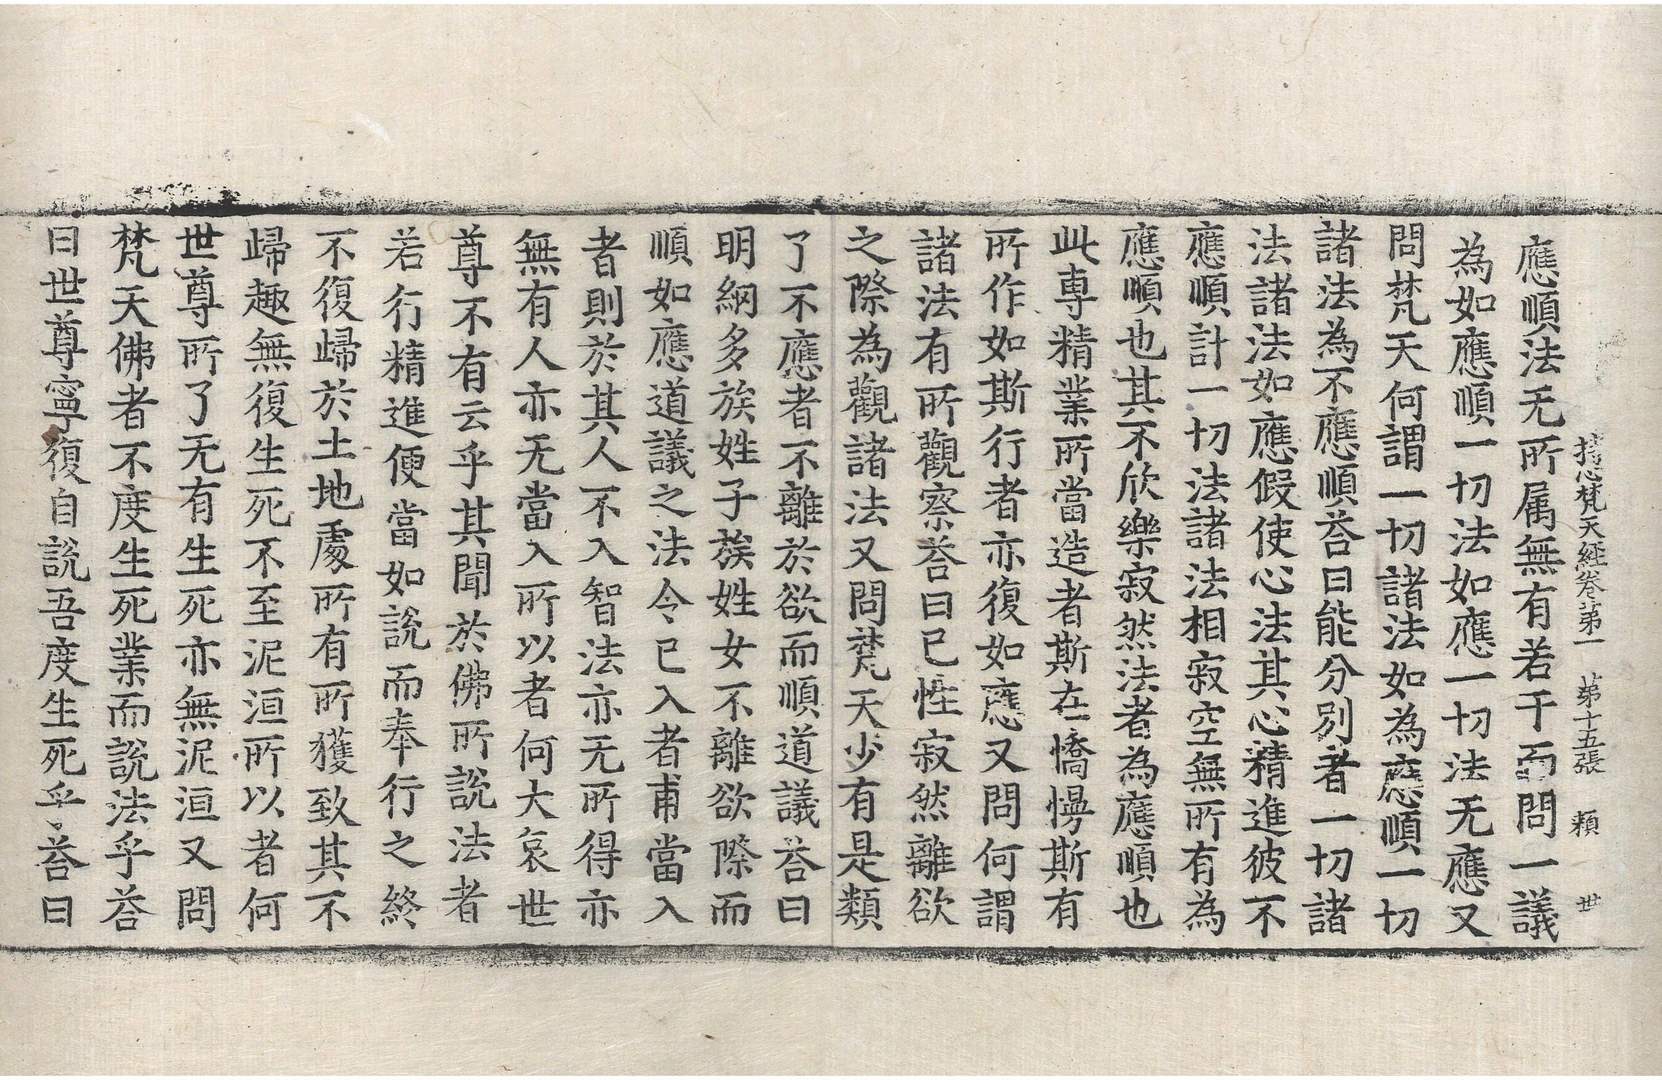 持心梵天經卷第一　第十五張　類　世
應順法无所属無有若干而問一議
為如應順一切法如應一切法无應又
問梵天何謂一切諸法如為應順一切
諸法為不應順荅曰能分別者一切諸
法諸法如應假使心法其心精進彼不
應順計一切法諸法相寂空無所有為
應順也其不欣樂寂然法者為應順也
此専精業所當造者斯在憍慢斯有
所作如斯行者亦復如應又問何謂
諸法有所觀察荅曰已性寂然離欲
之際為觀諸法又問梵天少有是類
了不應者不離於欲而順道議荅曰
明網多族姓子族姓女不離欲際而
順如應道議之法令已入者甫當入
者則於其人不入智法亦无所得亦
無有人亦无當入所以者何大哀世
尊不有云乎其聞於佛所說法者
若行精進便當如說而奉行之終
不復歸於土地處所有所獲致其不
歸趣無復生死不至泥洹所以者何
世尊所了无有生死亦無泥洹又問
梵天佛者不度生死業而說法乎荅
曰世尊寧復自說吾度生死乎荅曰